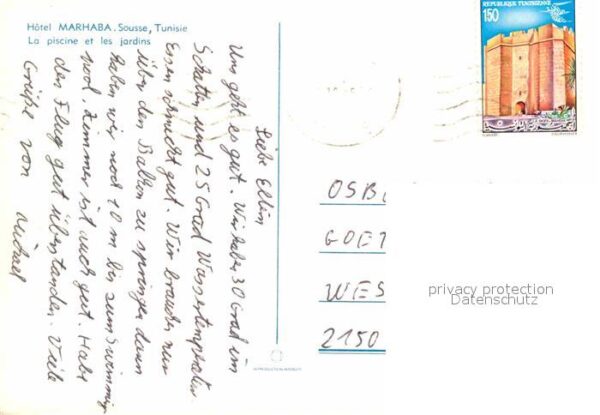 Hôtel MARHABA. Sousse, Tunisie
La piscine et les jardins
REPUBLIQUE TUNISIENNE
150
Liebe Ellin
Uns geht es gut. Wir haben 30 Grad im
Schatten und 25 Grad Wassertemperatur
Essen schmeckt gut. Wir brauchen nur
über den Balkon zu springen dann
haben wir noch 10 m bis zum Swimming
pool. Zimmer ist auch gut. Habe
den Flug gut überstanden. Viele
Grüße von Michael
OSB
GOET
WES
2150
privacy protection
Datenschutz